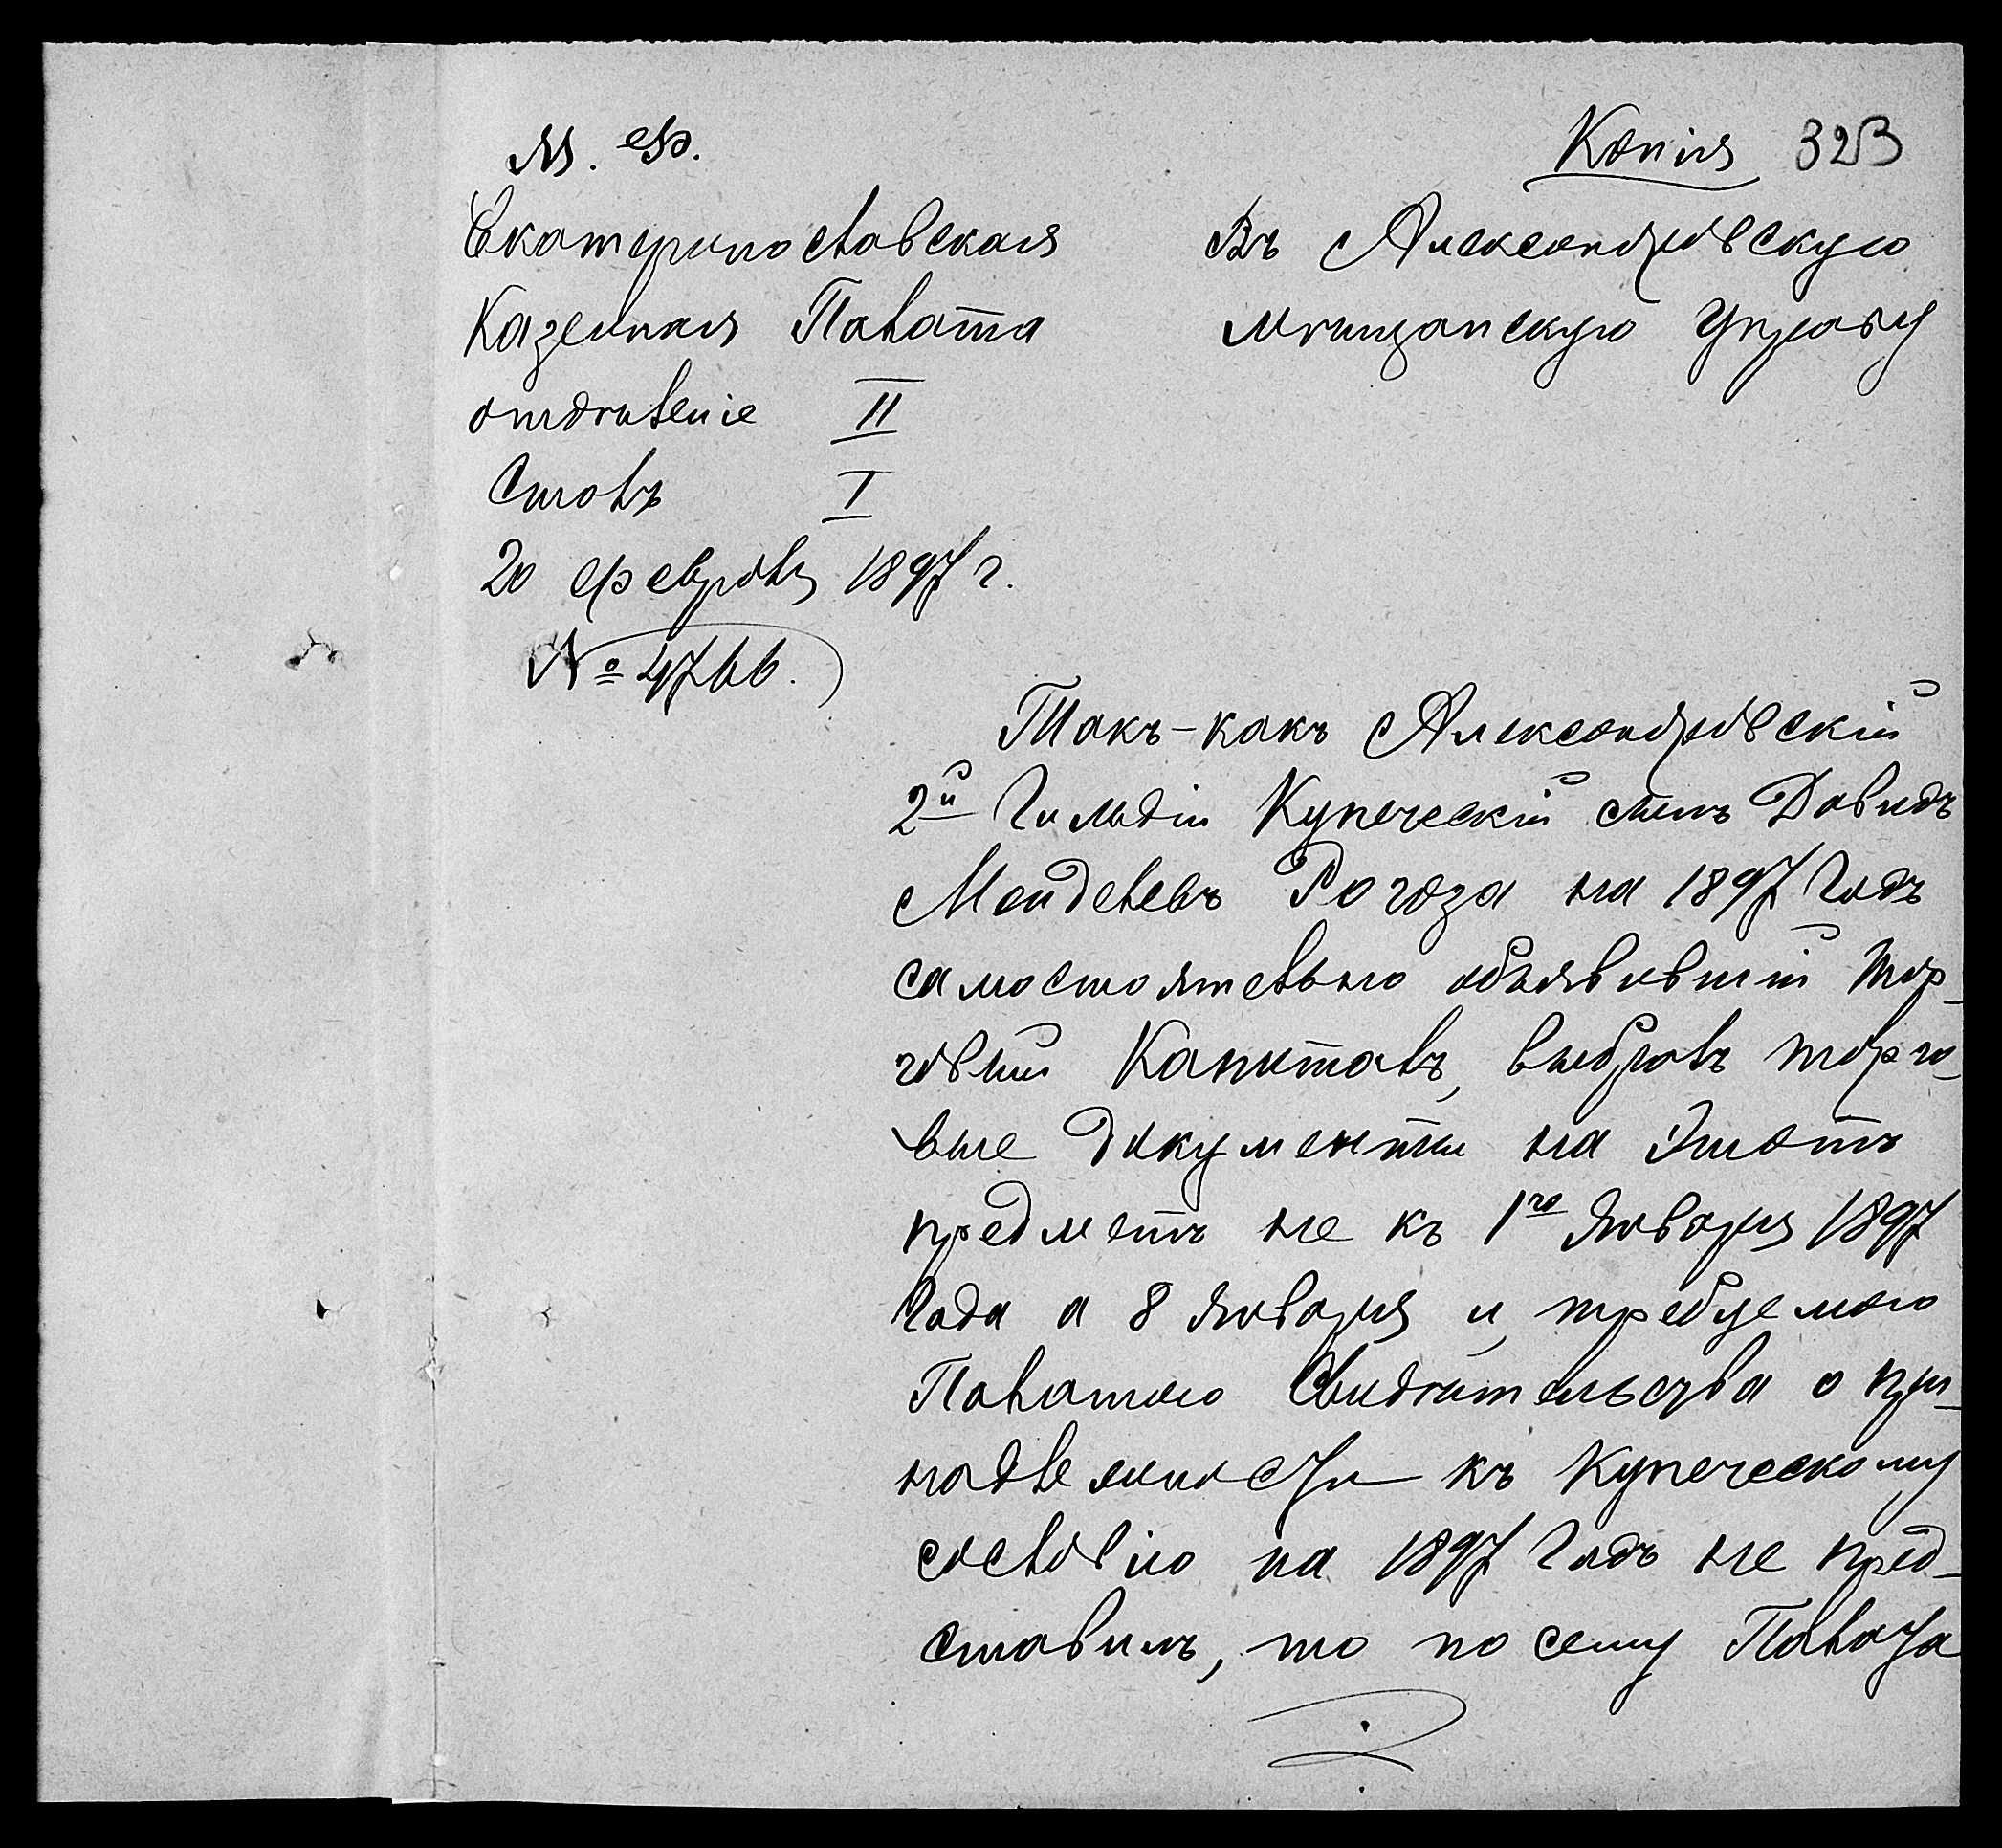 М. Ф.
Копія 323
Екатеринославская
Казенная Палата
отдѣленіе II
Столъ I
20 февраля 1897 г.
№ 4766.
Въ Александровскую
Мѣщанскую Управу
Такъ-какъ Александровскій
2й Гильдіи Купеческій сынъ Давидъ
Менделевъ Рогоза на 1897 годъ
самостоятельно объявившій тор-
говый Капиталъ, выбралъ торго-
вые документы на этотъ
предметъ не къ 1го Января 1897
года а 8 января и требуемаго
Палатою Свидѣтельства о при-
надлежности къ Купеческому
сословію на 1897 годъ не пред-
ставилъ, то по сему Палата